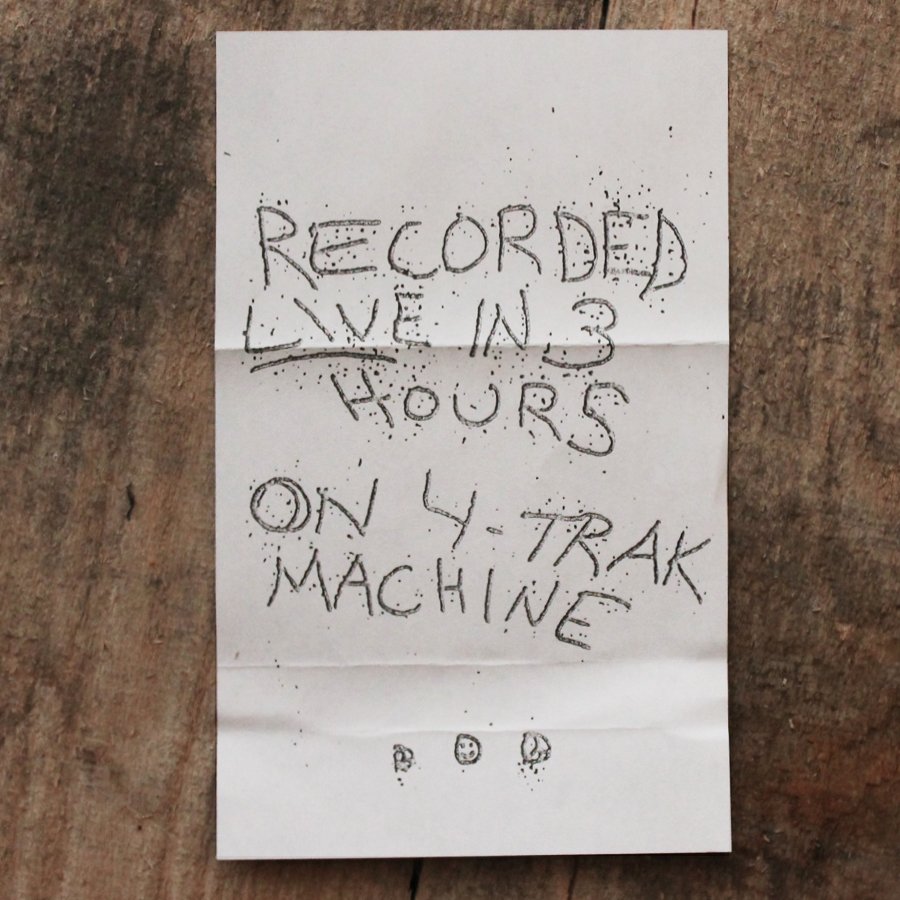 RECORDED
LIVE IN 3
HOURS
ON 4-TRAK
MACHINE